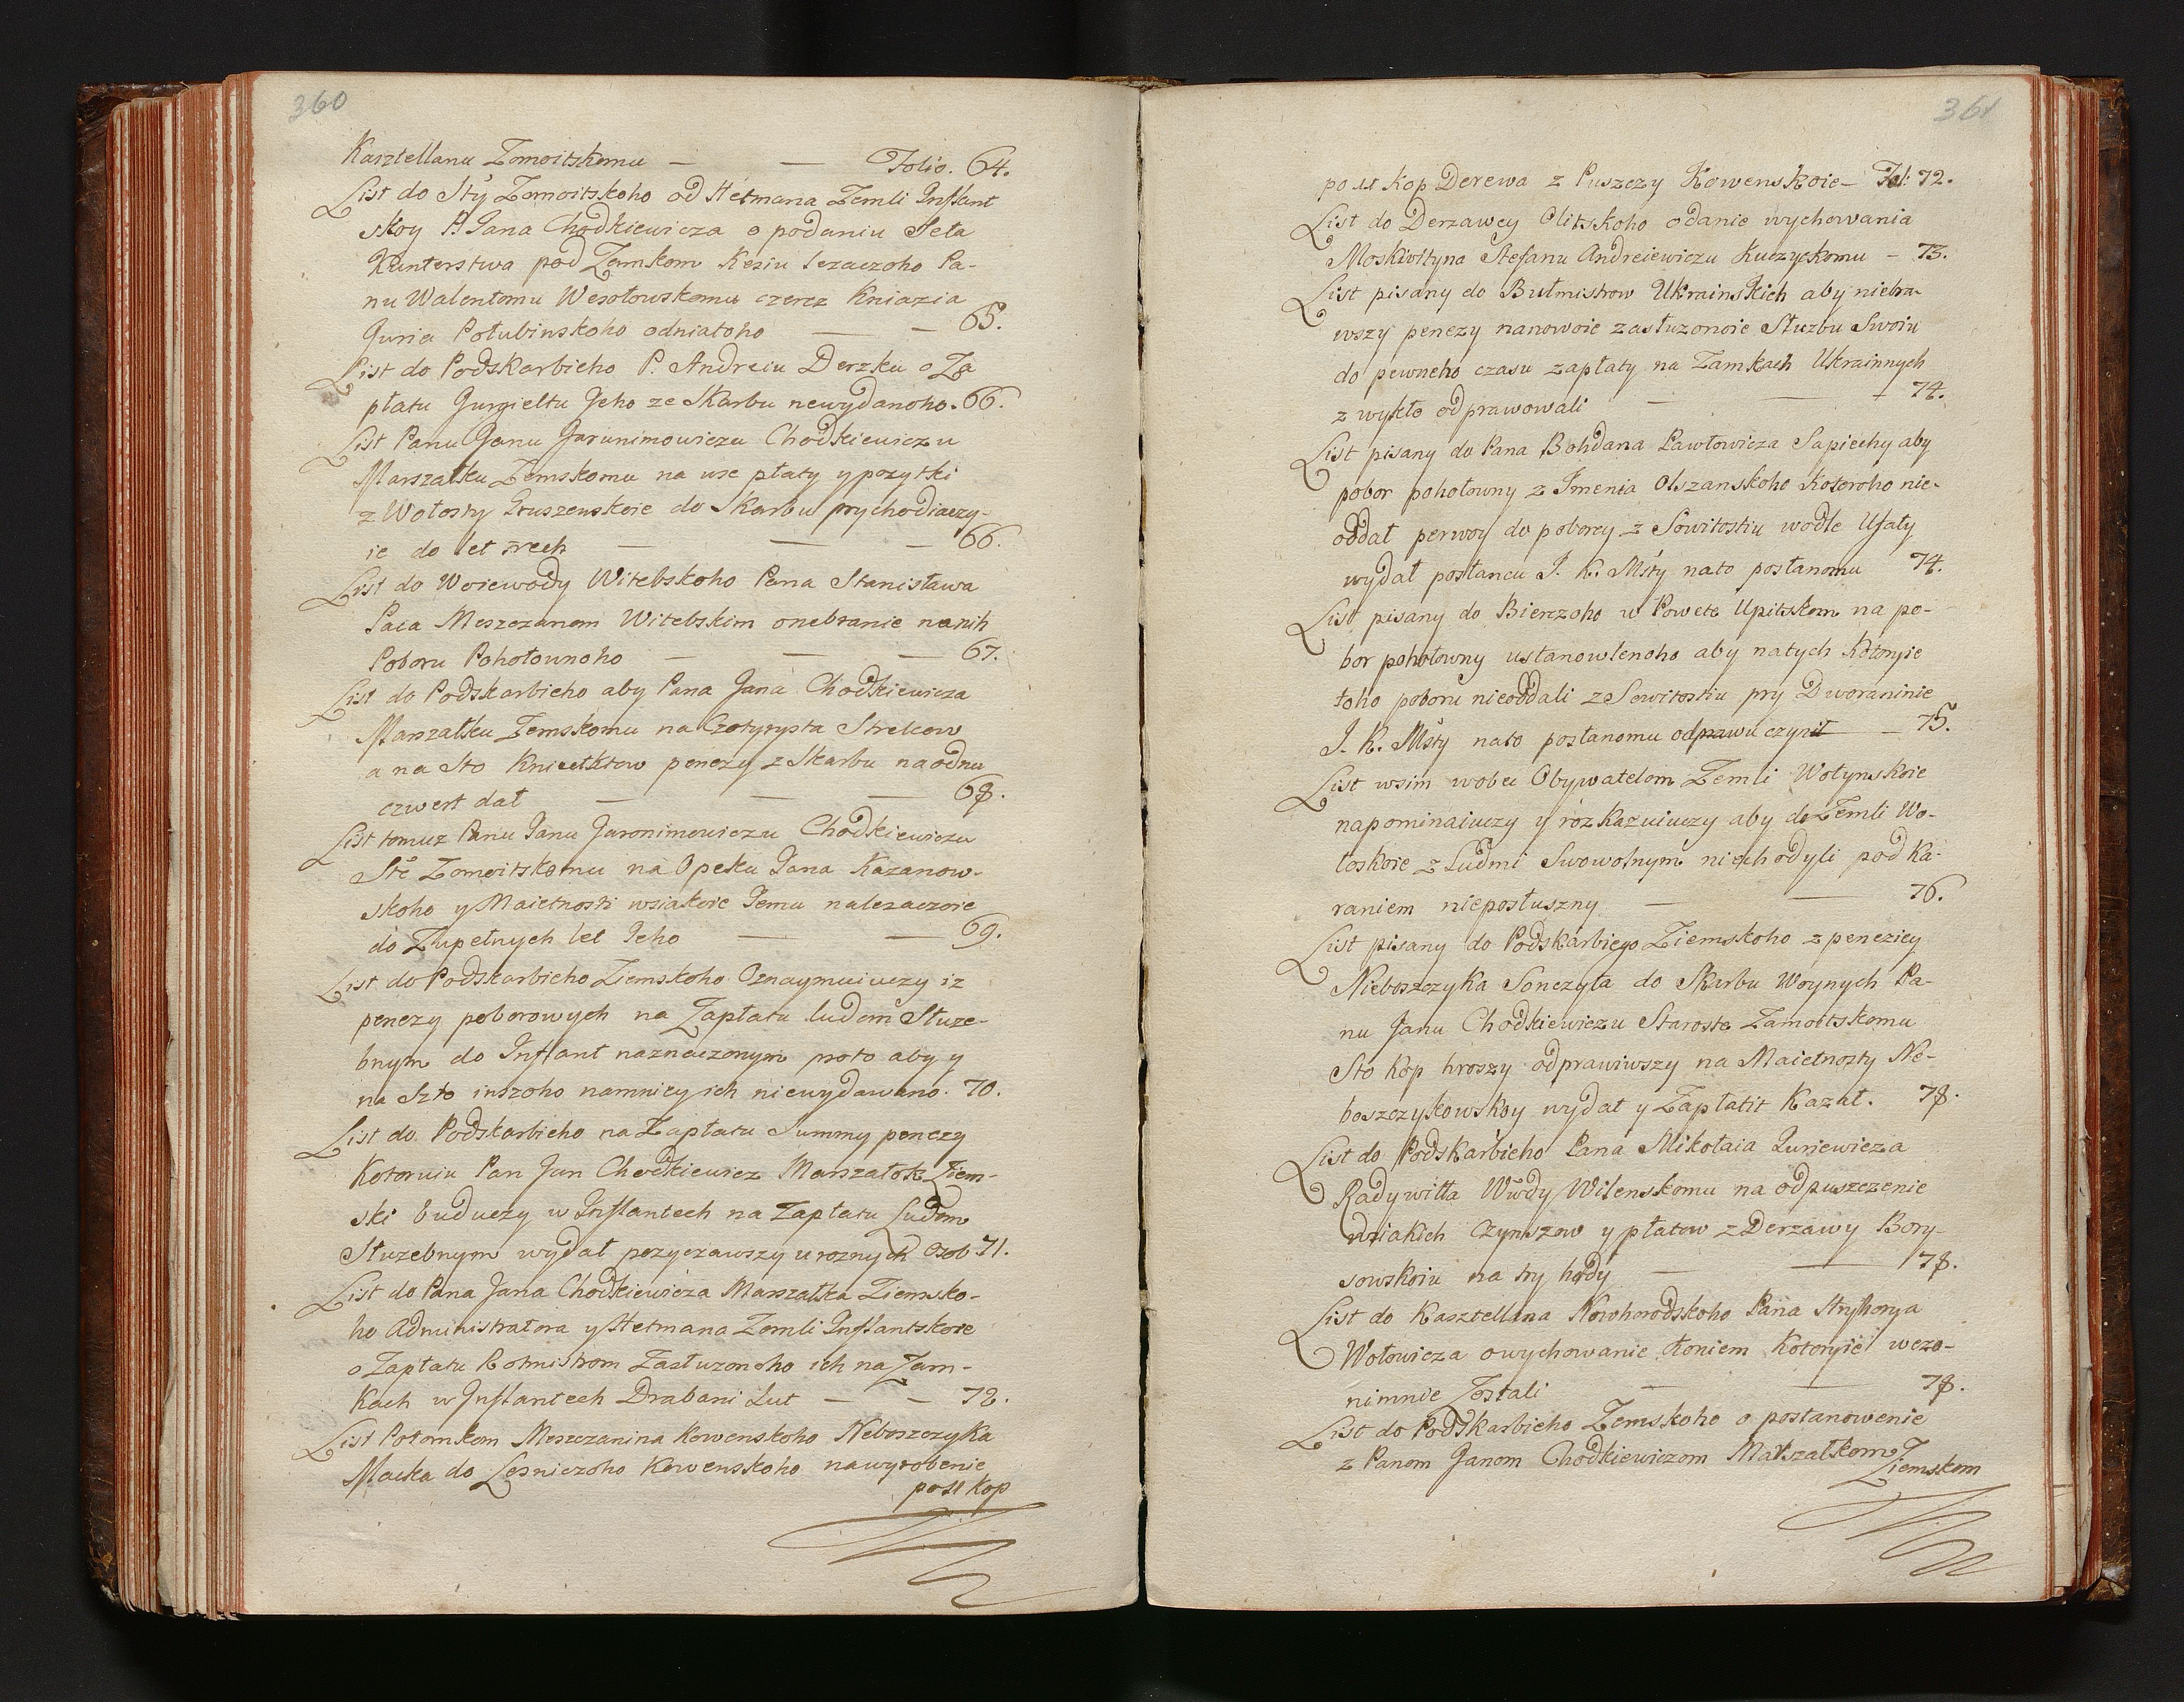 360
Kasztellanu Zomoitskomu — — Folio. 64.
List do Sty Zomoitskoho od Hetmana Zemli Inflant
skoy P. Jana Chodkiewicza o podaniu Seła
Kunterstwa pod Zamkom Kesiu lezaczoho Pa-
nu Walentomu Wesołowskomu czerez Kniazia
Juria Połubinskoho odniatoho — — 65.
List do Podskarbieho P. Andreiu Derzku o Za
płatu Jurgieltu Jeho ze Skarbu newydanoho. 66.
List Panu Janu Jaronimowiczu Chodkiewiczu
Marszałku Zemskomu na wse płaty y pozytki
z Wołosty Gruszewskoie do Skarbu prychodiaczy-
ie do let trech — — — 66.
List do Woiewody Witebskoho Pana Stanisława
Paca Meszczanom Witebskim o nebranie na nih
Poboru Pohołownoho — — — 67.
List do Podskarbieho aby Pana Jana Chodkiewicza
Marszałku Zemskomu na Czotyrysta Strelcow
a na Sto Kniechtow penezy z Skarbu na odnu
czwert dał — — — 68.
List tomuz Panu Janu Jaronimowiczu Chodkiewiczu
Stě Zomoitskomu na Opeku Jana Kazanow-
skoho y Maietnosti wsiakoie Jemu nalezaczoie
do Zupełnych let Jeho — — 69.
List do Podskarbieho Ziemskoho Oznaymuiuczy iz
penezy poborowych na Zapłatu ludem Słuze-
bnym do Inflant naznaczonym proto aby y
na Szto inszoho namniey ich niewydawano. 70.
List do Podskarbieho na Zapłatu Summy penezy
Kotoruiu Pan Jan Chodkiewicz Marszałok Ziem-
ski buduczy w Inflantech na Zapłatu Ludem
Słuzebnym wydał pozyczawszy u roznych Osob 71.
List do Pana Jana Chodkiewicza Marszałka Ziemsko-
ho Administratora y Hetmana Zemli Inflantskoie
o Zapłatu Rotmistrom Zasłuzonoho ich na Zam-
Kach w Inflantech Drabani Lut — — 72.
List Potomkom Meszczanina Kowenskoho Neboszczyka
Macka do Lesniczoho Kowenskoho na wyrobenie
po 11 Kop
361
po 11 Kop Derewa z Puszczy Kowenskoie — Fol: 72.
List do Derzawcy Olitskoho o danie wychowania
Moskwityna Stefanu Andreiewiczu Kuczyckomu — 73.
List pisany do Bułmistrow Ukrainskich aby niebra-
wszy penezy nanowoie zasłuzonoie Słuzbu Swoiu
do pewneho czasu zapłaty na Zamkach Ukrainnych
zwykło odprawowali — — — 74.
List pisany do Pana Bohdana Pawłowicza Sapiehy aby
pobor pohołowny z Imenia Olszanskoho Kotoroho nie-
oddał perwoy do poborcy z Sowitostiu wodle Ufały
wydał posłancu J. K. Msty nato posłanomu 74.
List pisany do Bierczoho w Powete Upitskom na po-
bor pohołowny ustanowlenoho aby natych Kotoryie
toho poboru nieoddali z Sowitostiu pry Dworaninie
J. K. Msty nato posłanomu odprawu czynił — 75.
List wsim wobec Obywatelom Zemli Wołynskoie
napominaiuczy y rozKazuiuczy aby do Zemli Wo-
łoskoie z Ludmi Swowolnym niechodyli pod Ka-
raniem niepostuszny — — 76.
List pisany do Podskarbiego Ziemskoho z peneziey
Nieboszczyka Sonczyła do Skarbu Woynych Pa-
nu Janu Chodkiewiczu Staroste Zamoitskomu
Sto Kop hroszy odprawiwszy na Maietnosty Ne-
boszczykowskoy wydał y Zapłatit Kazał. 78.
List do Podskarbieho Pana Mikołaia Juriewicza
Radywiłła Wwdy Wilenskomu na odpuszczenie
wsiakich Czynszow y płatow z Derzawy Bory-
sowskoiu na try hody — — 78.
List do Kasztellana Nowhorodskoho Pana Hryhorya
Wołowicza o wychowanie Koniem Kotoryie weze-
nimnoie Zostali — — 78.
List do Podskarbieho Zemskoho o postanowenie
z Panom Janom Chodkiewiczom Marszałkom Ziemskom